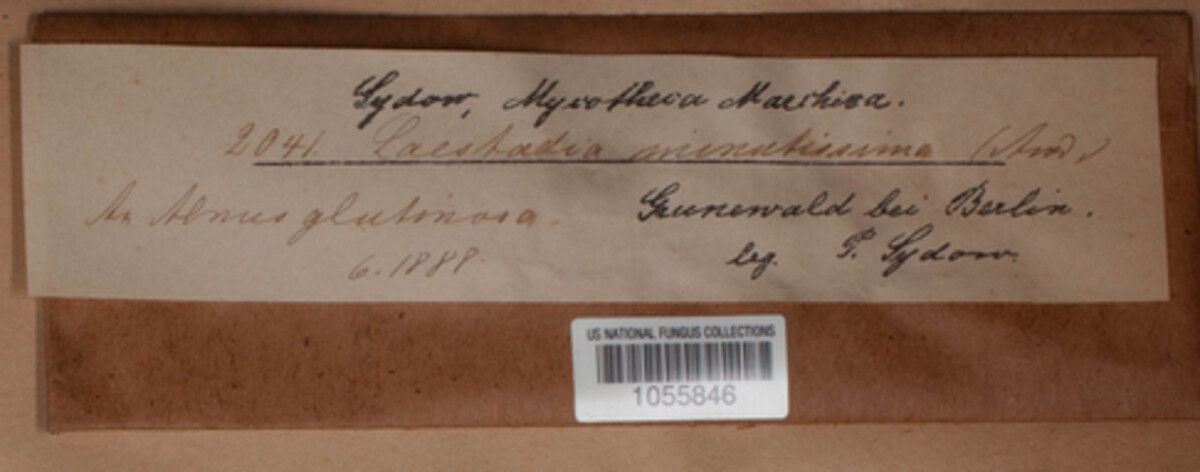 Sydow, Mycotheca Marchica.
2041. Laestadia minutissima
An Alnus glutinosa.
Grunewald bei Berlin.
6. 1888
leg. P. Sydow.
US NATIONAL FUNGUS COLLECTIONS
1055846